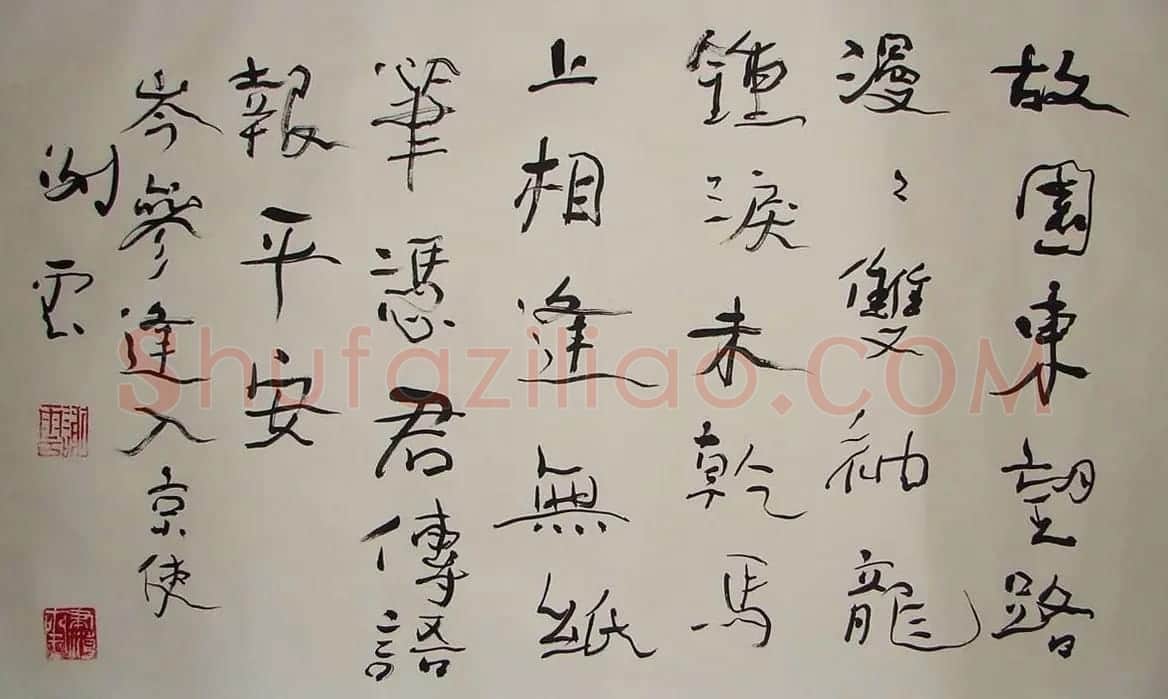 故園東望路
漫〻雙袖龍
鍾淚未乾馬
上相逢無紙
筆憑君傳語
報平安
岑參逢入京使
谢雲
Shufaziliao.COM